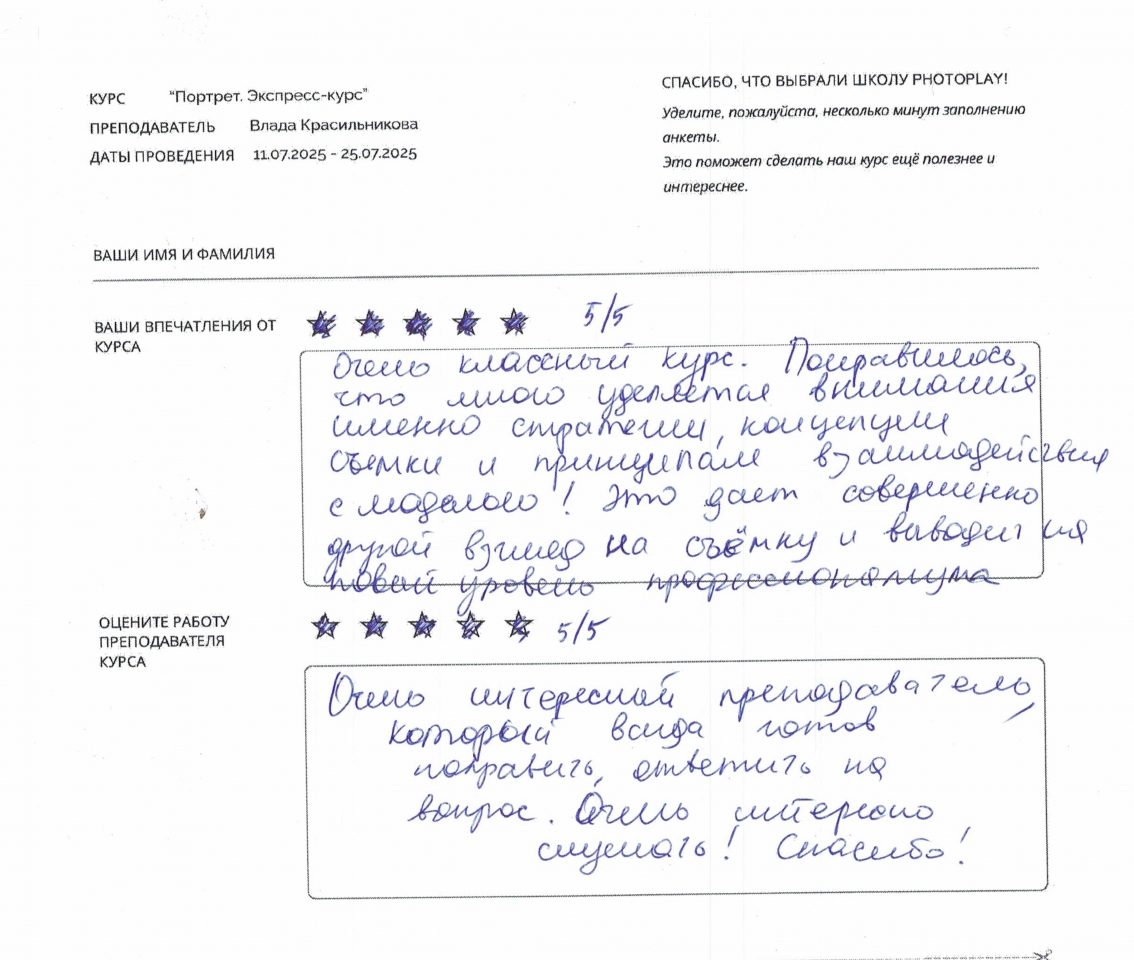 КУРС "Портрет. Экспресс-курс"
ПРЕПОДАВАТЕЛЬ Влада Красильникова
ДАТЫ ПРОВЕДЕНИЯ 11.07.2025 - 25.07.2025
СПАСИБО, ЧТО ВЫБРАЛИ ШКОЛУ PHOTOPLAY!
Уделите, пожалуйста, несколько минут заполнению
анкеты.
Это поможет сделать наш курс ещё полезнее и
интереснее.
ВАШИ ИМЯ И ФАМИЛИЯ
ВАШИ ВПЕЧАТЛЕНИЯ ОТ
КУРСА
5/5
Очень классный курс. Понравилось,
что много уделяется внимания
именно стратегии, концепции
съемки и принципам взаимодействия
с моделью! Это дает совершенно
другой взгляд на съёмку и выводит на
новый уровень профессионализма
ОЦЕНИТЕ РАБОТУ
ПРЕПОДАВАТЕЛЯ
КУРСА
5/5
Очень интересный преподаватель,
который всегда готов
поправить, ответить на
вопрос. Очень интересно
слушать! Спасибо!